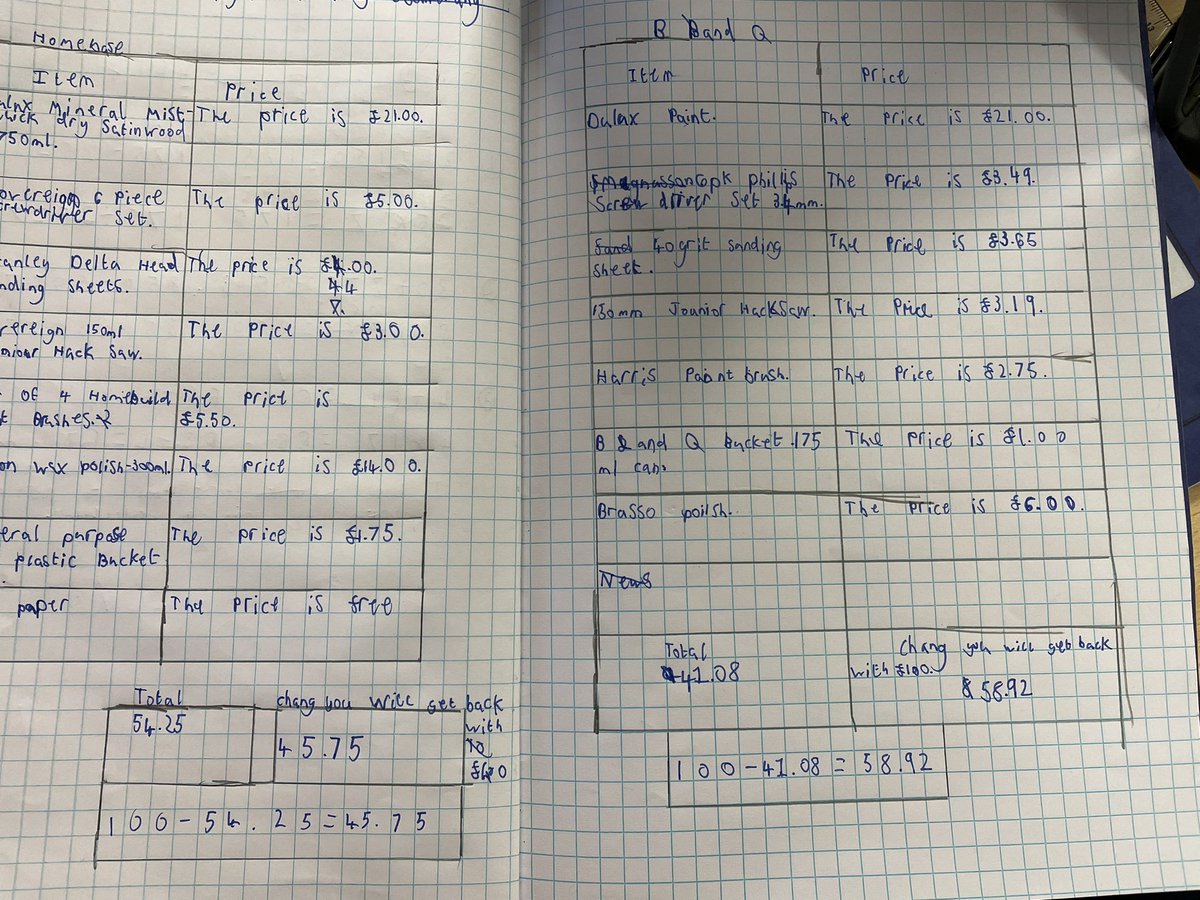 Homebase
Item
Price
Mineral Mist-
dry Satinwood
750ml.
The price is £21.00.
6 Piece
Set.
The price is £5.00.
Delta Head
Sheets.
The price is £4.00.
4.4
150ml
Hack Saw.
The price is £3.00.
of 4 Homebuild
Brushes.
The price is
£5.50.
wax polish-300ml.
The price is £14.00.
purpose
plastic Bucket
The price is £1.75.
paper
The price is free
Total
54.25
chang you will get back
with
£100
45.75
100-54.25=45.75
B Band Q
Item
Price
Dulax Paint.
The price is £21.00.
phillis
Screw driver Set 34mm.
The Price is £3.49.
40grit sanding
sheet.
The Price is £3.65
150mm Jounior HackSaw.
The Price is £3.19.
Harris Paint brush.
The Price is £2.75.
B & and Q bucket 175
ml can.
The price is £1.00
Brasso poilsh.
The price is £6.00.
News
Total
41.08
Chang you will get back
with £100.
£58.92
100-41.08=58.92